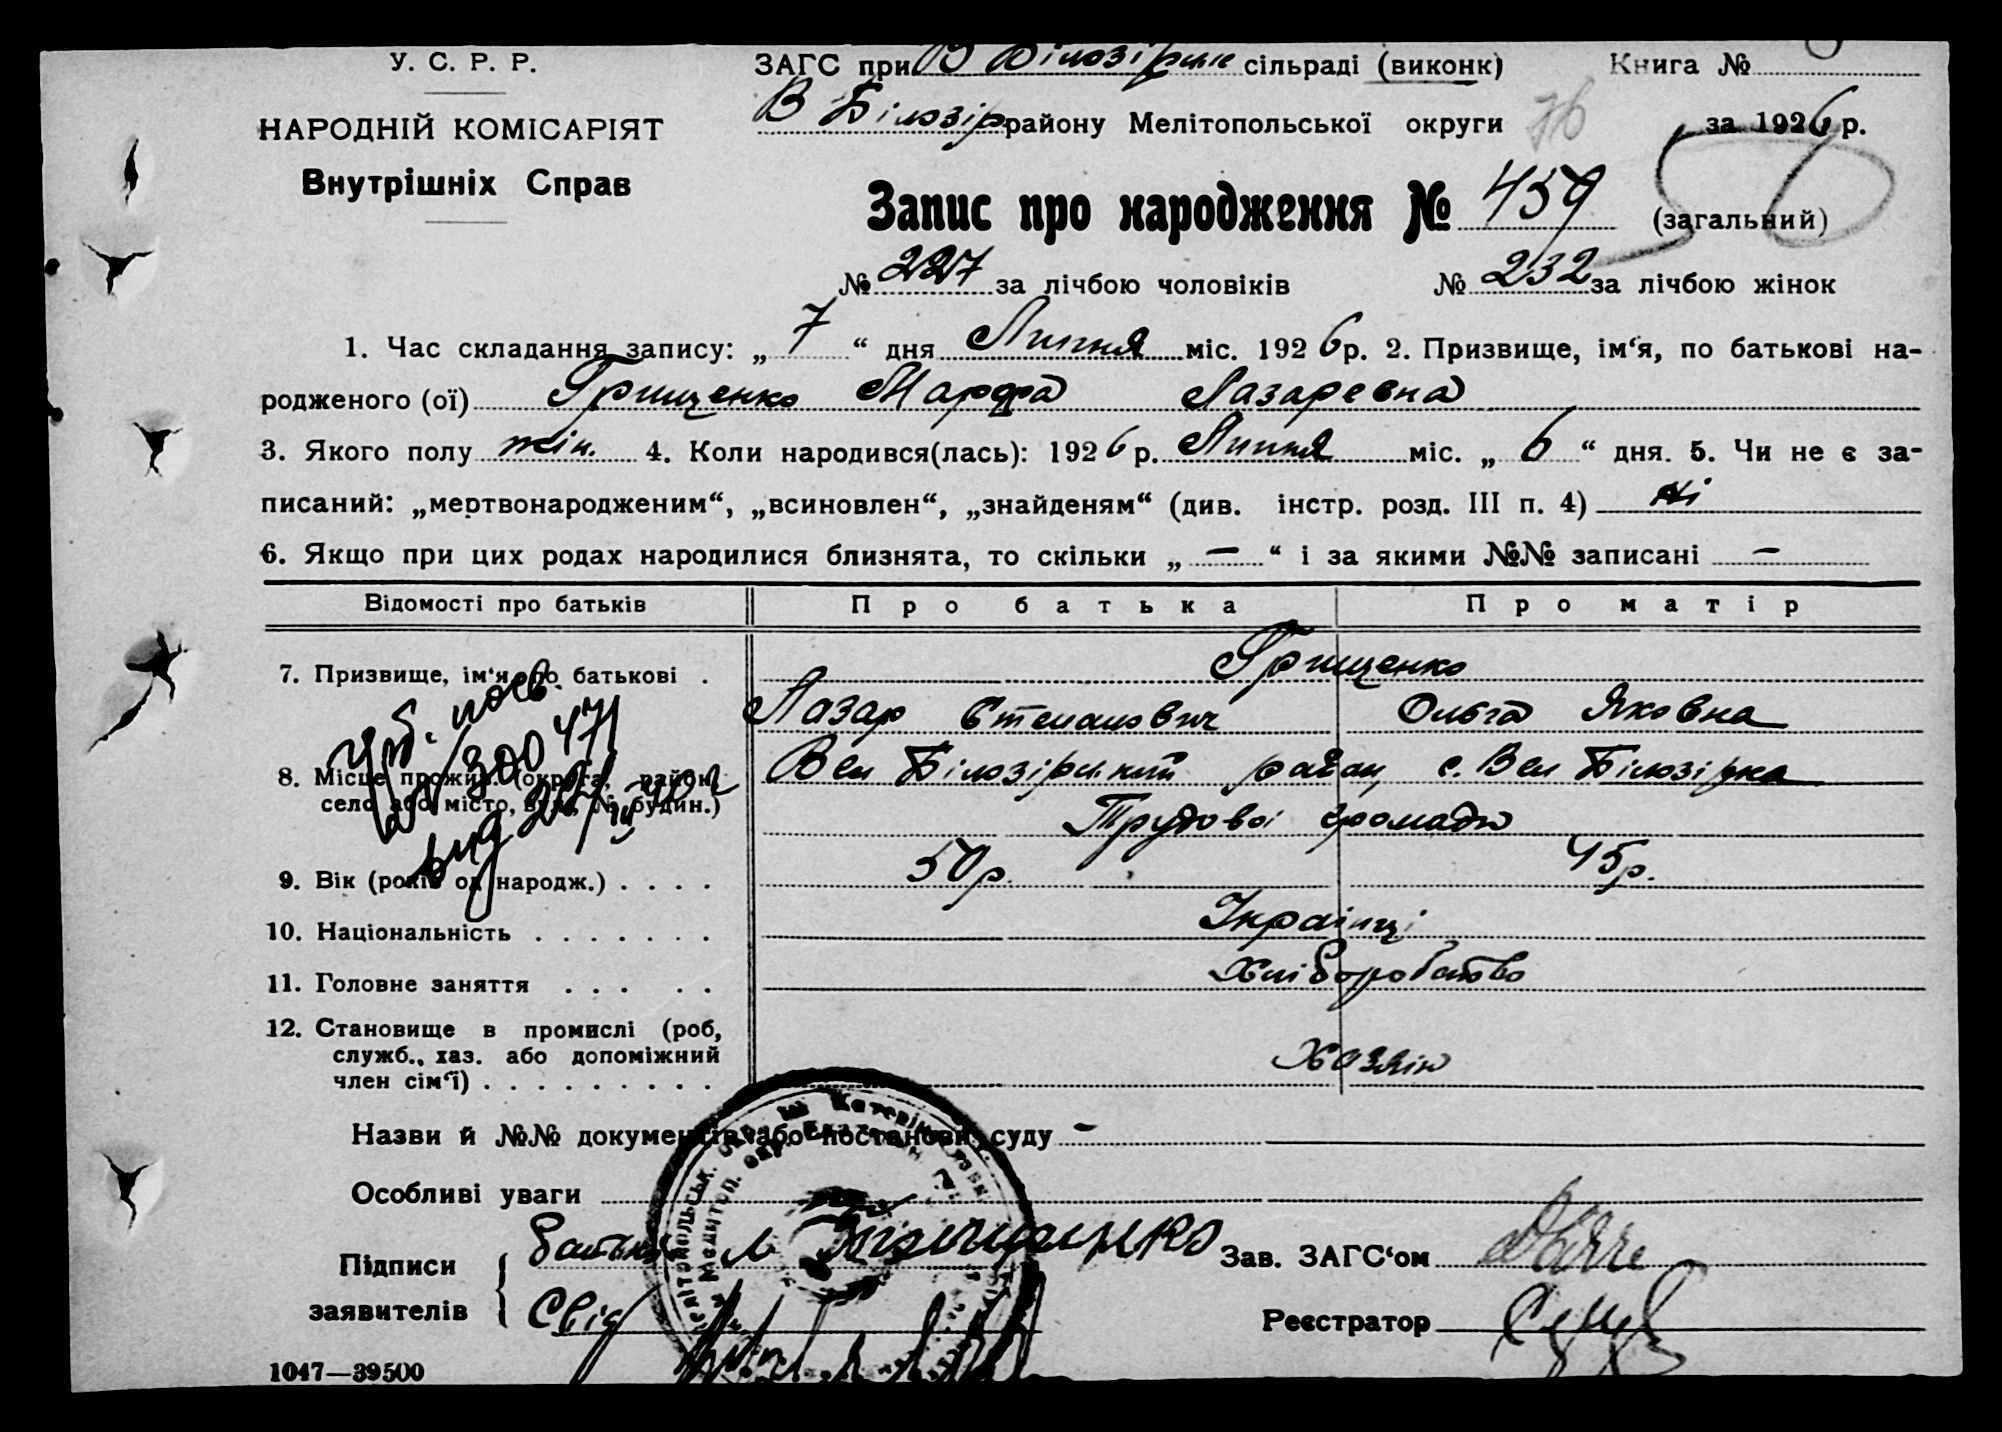 У. С. Р. Р.
НАРОДНІЙ КОМІСАРІЯТ
Внутрішніх Справ
ЗАГС при В Білозірці сільраді (виконк) Книга №
В Білозір району Мелітопольської округи 76 за 1926 р.
Запис про народження № 459 (загальний)
№ 227 за лічбою чоловіків № 232 за лічбою жінок
1. Час складання запису: „ 7 “ дня Липня міс. 1926 р. 2. Призвище, ім‘я, по батькові на-
родженого (ої) Грищенко Марфа Лазаревна
3. Якого полу жін. 4. Коли народився(лась): 1926 р. Липня міс. „ 6 “ дня. 5. Чи не є за-
писаний: „мертвонародженим“, „всиновлен“, „знайденям“ (див. інстр. розд. III п. 4) ні
6. Якщо при цих родах народилися близнята, то скільки „ — “ і за якими №№ записані —
Відомості про батьків Про батька Про матір
7. Призвище, ім‘я, по батькові . Грищенко
Лазар Степанович Ольга Яковна
8. Місце прожив. (округа, район, Вел Білозірський район, с. Вел Білозірка
село або місто, вул., № будин.) Трудової громади
9. Вік (років од народж.) . . . . 50 р. 45 р.
10. Національність . . . . . . . Українці
11. Головне заняття . . . . . Хліборобство
12. Становище в промислі (роб,
служб., хаз. або допоміжний Хазяїн
член сім‘ї) . . . . . . . . .
Назви й №№ документів або постанови суду —
Особливі уваги
Підписи Батько Зав. ЗАГС‘ом
заявителів Свід Реєстратор
1047—39500